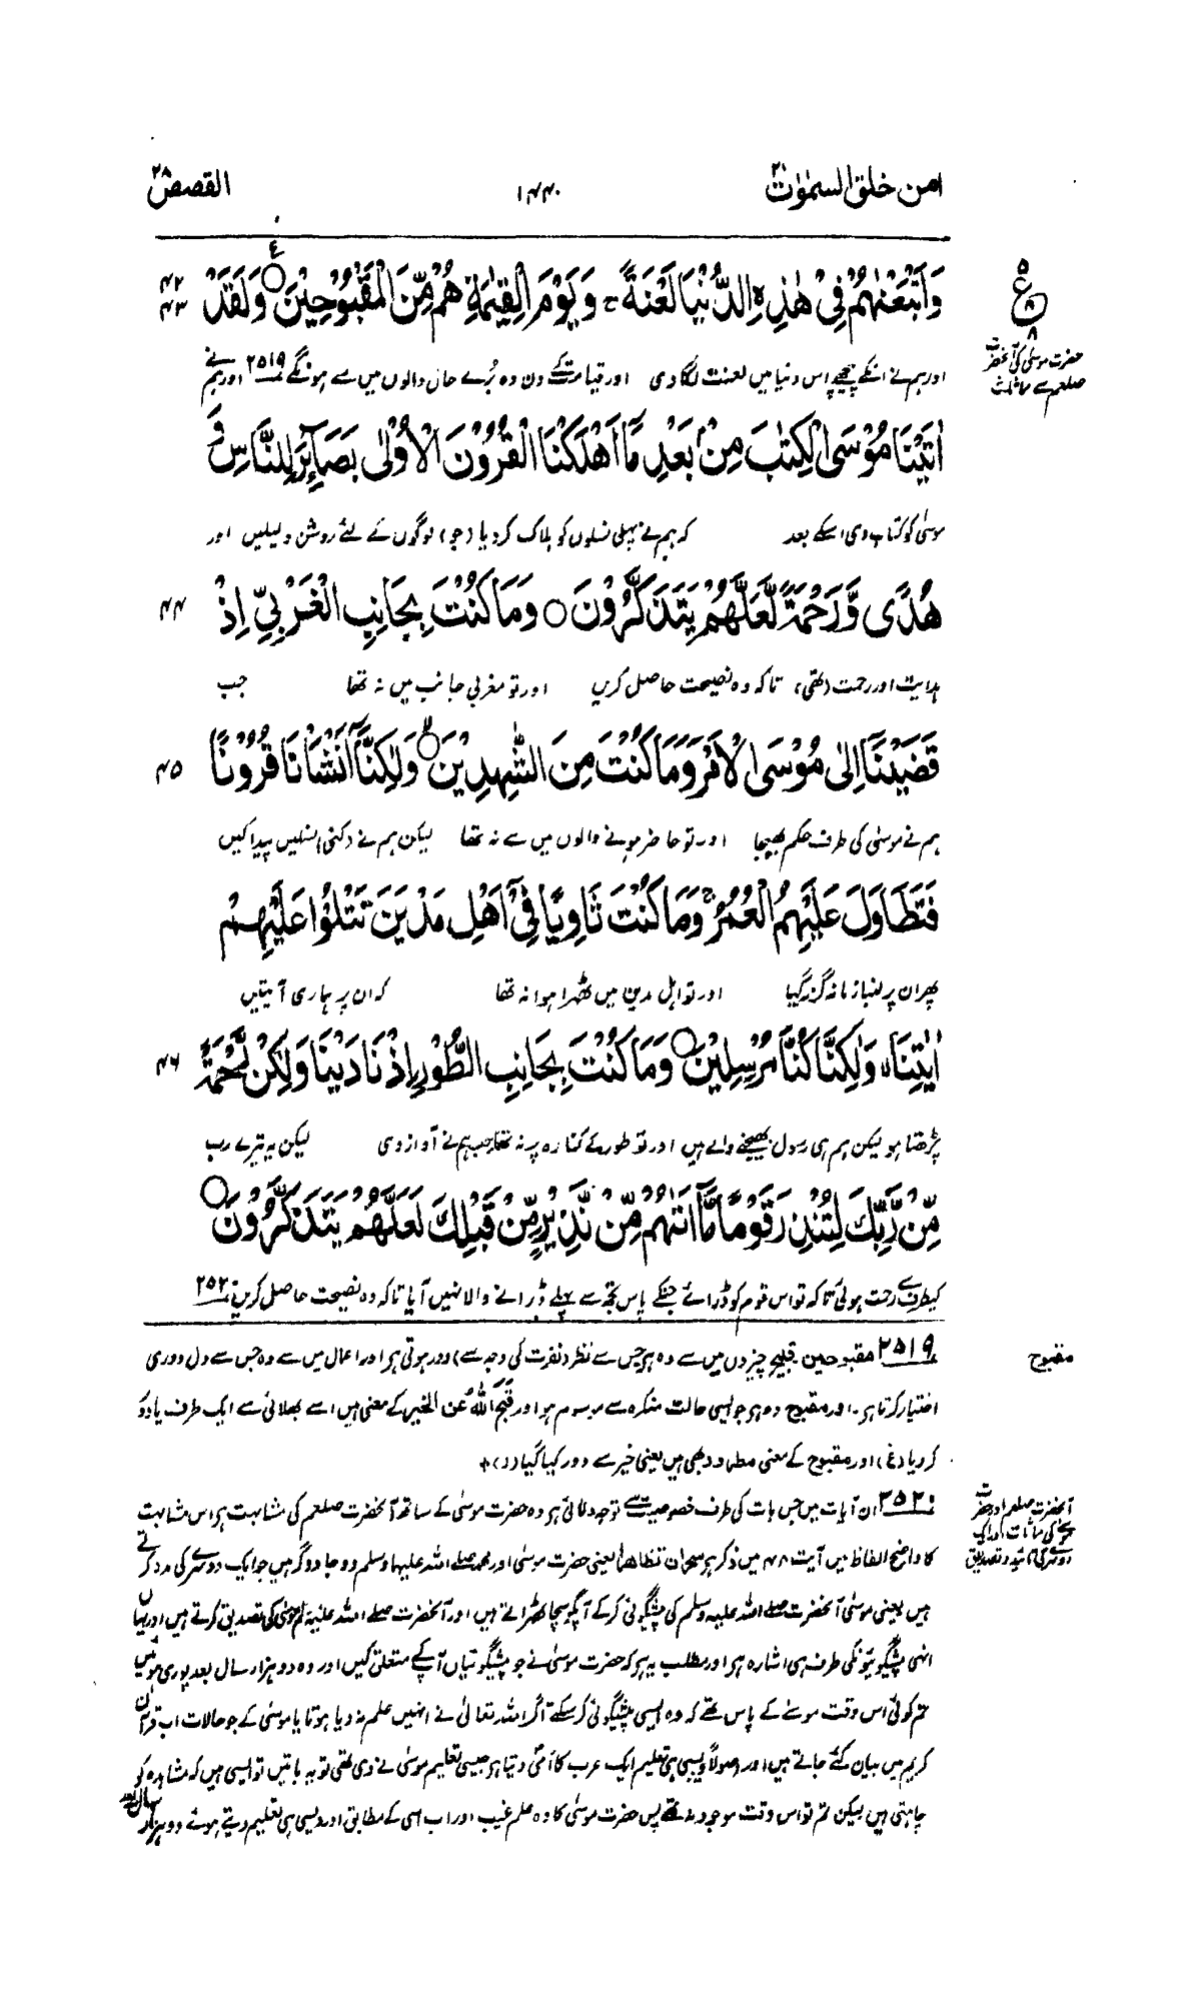 امن خلق السمٰوٰت ۲۰
۱۴۴۰
القصص ۲۸
وَاَتْبَعْنٰهُمْ فِيْ هٰذِهِ الدُّنْيَا لَعْنَةً ۚ وَيَوْمَ الْقِيٰمَةِ هُمْ مِّنَ الْمَقْبُوْحِيْنَ ○ وَلَقَدْ
۴۲
۴۳
اور ہم نے انکے پیچھے اس دنیا میں لعنت لگا دی اور قیامت کے دن وہ بُرے حال والوں میں سے ہونگے ۲۵۱۹ اور ہم نے
حضرت موسیٰ کی آنحضرت
صلعم سے مماثلت
اٰتَيْنَا مُوْسَى الْكِتٰبَ مِنْۢ بَعْدِ مَآ اَهْلَكْنَا الْقُرُوْنَ الْاُوْلٰى بَصَآئِرَ لِلنَّاسِ وَ
موسیٰ کو کتاب دی اسکے بعد کہ ہم نے پہلی نسلوں کو ہلاک کر دیا (جو) لوگوں کے لئے روشن دلیلیں اور
هُدًى وَّرَحْمَةً لَّعَلَّهُمْ يَتَذَكَّرُوْنَ ○ وَمَا كُنْتَ بِجَانِبِ الْغَرْبِيِّ اِذْ
۴۴
ہدایت اور رحمت (تھی) تاکہ وہ نصیحت حاصل کریں اور تو مغربی جانب میں نہ تھا جب
قَضَيْنَآ اِلٰى مُوْسَى الْاَمْرَ وَمَا كُنْتَ مِنَ الشّٰهِدِيْنَ ○ وَلٰكِنَّآ اَنْشَاْنَا قُرُوْنًا
۴۵
ہم نے موسیٰ کی طرف حکم بھیجا اور تو حاضر ہونے والوں میں سے نہ تھا لیکن ہم نے (کئی) نسلیں پیدا کیں
فَتَطَاوَلَ عَلَيْهِمُ الْعُمُرُ ۚ وَمَا كُنْتَ ثَاوِيًا فِيْٓ اَهْلِ مَدْيَنَ تَتْلُوْا عَلَيْهِمْ
پھر ان پر لمبا زمانہ گزر گیا اور تو اہل مدین میں ٹھہرا ہوا نہ تھا کہ ان پر ہماری آیتیں
اٰيٰتِنَا ۙ وَلٰكِنَّا كُنَّا مُرْسِلِيْنَ ○ وَمَا كُنْتَ بِجَانِبِ الطُّوْرِ اِذْ نَادَيْنَا وَلٰكِنْ رَّحْمَةً
۴۶
پڑھتا ہو لیکن ہم ہی رسول بھیجنے والے ہیں اور تو طور کے کنارہ پر نہ تھا جب ہم نے آواز دی لیکن یہ تیرے رب
مِّنْ رَّبِّكَ لِتُنْذِرَ قَوْمًا مَّآ اَتٰىهُمْ مِّنْ نَّذِيْرٍ مِّنْ قَبْلِكَ لَعَلَّهُمْ يَتَذَكَّرُوْنَ ○
کیطرف سے رحمت ہوئی تاکہ تو اس قوم کو ڈرائے جنکے پاس تجھ سے پہلے ڈرانے والا نہیں آیا تاکہ وہ نصیحت حاصل کریں ۲۵۲۰
مقبوح
۲۵۱۹ مقبوحین قبیح چیزوں میں سے وہ ہے جس سے نظر (نفرت کی وجہ سے) دور ہوتی ہے اور اعمال میں سے وہ جس سے دل دوری
اختیار کرتا ہے۔ اور مقبوح وہ ہے جو ایسی حالت منکرہ سے موسوم ہو اور قَبَّحَ اللّٰہُ عن الخیر کے معنی ہیں اسے بھلائی سے ایک طرف یا دور
کر دیا (غ) اور مقبوح کے معنی مطرود بھی ہیں یعنی خیر سے دور کیا گیا (ر)+
آنحضرت صلعم اور حضرت
۲۵۲۰ ان آیات میں جس بات کی طرف خصوصیت سے توجہ دلائی ہے وہ حضرت موسیٰ کے ساتھ آنحضرت صلعم کی مشابہت ہے اس مشابہت
کا واضح الفاظ میں آیت ۴۸ میں ذکر ہے سحران تظاھرا یعنی حضرت موسیٰ اور محمد صلے اللہ علیہما وسلم دو جادوگر ہیں جو ایک دوسرے کی مدد کرتے
ہیں یعنی موسیٰ آنحضرت صلے اللہ علیہ وسلم کی پیشگوئی کرکے آپکو سچا ٹھہراتے ہیں اور آنحضرت صلے اللہ علیہ وسلم موسیٰ کی تصدیق کرتے ہیں اور یہاں
انہی پیشگوئیوں کی طرف ہی اشارہ ہے اور مطلب یہ ہے کہ حضرت موسیٰ نے جو پیشگوئیاں آپکے متعلق کیں اور وہ دو ہزار سال بعد پوری ہوئیں
تم کوئی اس وقت موسے کے پاس تھے کہ وہ ایسی پیشگوئی کر سکتے اگر اللہ تعالیٰ نے انہیں علم نہ دیا ہوتا یا موسیٰ کے جو حالات اب قرآن
کریم میں بیان کئے جاتے ہیں اور اصولاً ویسی ہی تعلیم ایک عرب کا اُمّی دیتا ہے جیسی تعلیم موسیٰ نے دی تھی تو یہ باتیں تو ایسی ہیں کہ مشاہدہ کو
چاہتی ہیں لیکن تم تو اس وقت موجود نہ تھے پس حضرت موسیٰ کا وہ علم غیب اور اب اسی کے مطابق اور ویسی ہی تعلیم دیتے ہوئے دو ہزار سال بعد